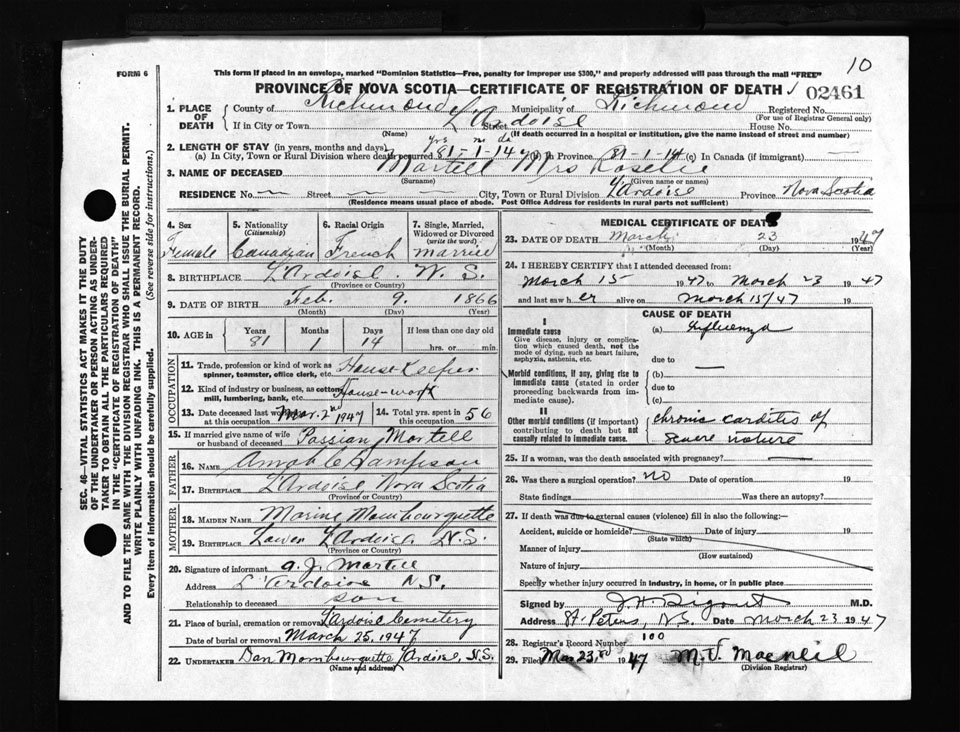 10
FORM 6
This form if placed in an envelope, marked "Dominion Statistics—Free, penalty for improper use $300," and properly addressed will pass through the mail "FREE"
PROVINCE OF NOVA SCOTIA—CERTIFICATE OF REGISTRATION OF DEATH 02461
SEC. 46—VITAL STATISTICS ACT MAKES IT THE DUTY
OF THE UNDERTAKER OR PERSON ACTING AS UNDER-
TAKER TO OBTAIN ALL THE PARTICULARS REQUIRED
IN THE "CERTIFICATE OF REGISTRATION OF DEATH"
AND TO FILE THE SAME WITH THE DIVISION REGISTRAR WHO SHALL ISSUE THE BURIAL PERMIT.
WRITE PLAINLY WITH UNFADING INK. THIS IS A PERMANENT RECORD.
Every item of information should be carefully supplied. (See reverse side for instructions.)
1. PLACE OF DEATH
County of Richmond Municipality of Richmond Registered No.
(For use of Registrar General only)
If in City or Town L'Ardoise Street House No.
(Name) (If death occurred in a hospital or institution, give the name instead of street and number)
2. LENGTH OF STAY (in years, months and days) yrs m ds
(a) In City, Town or Rural Division where death occurred 81-1-14 (b) In Province 81-1-14 (c) In Canada (if immigrant) —
3. NAME OF DECEASED Martell Mrs Roselie
(Surname) (Given name or names)
RESIDENCE No. — Street — City, Town or Rural Division L'Ardoise Province Nova Scotia
(Residence means usual place of abode. Post Office Address for residents in rural parts not sufficient)
4. Sex
Female
5. Nationality (Citizenship)
Canadian
6. Racial Origin
French
7. Single, Married, Widowed or Divorced (write the word)
married
8. BIRTHPLACE L'Ardoise. N. S.
(Province or Country)
9. DATE OF BIRTH Feb. 9. 1866
(Month) (Day) (Year)
10. AGE in Years Months Days If less than one day old
81 1 14 hrs. or min.
OCCUPATION
11. Trade, profession or kind of work as House Keeper
spinner, teamster, office clerk, etc.
12. Kind of industry or business, as cotton House-work
mill, lumbering, bank, etc.
13. Date deceased last worked at this occupation Mar. 2nd 1947
14. Total yrs. spent in this occupation 56
15. If married give name of wife or husband of deceased Passian Martell
FATHER
16. NAME Amable Sampson
17. BIRTHPLACE L'Ardoise Nova Scotia
(Province or Country)
MOTHER
18. MAIDEN NAME Marine Mombourquette
19. BIRTHPLACE Lower L'Ardoise N.S.
(Province or Country)
20. Signature of informant A. J. Martell
Address L'Ardoise N.S.
Relationship to deceased son
21. Place of burial, cremation or removal L'Ardoise Cemetery
Date of burial or removal March 25, 1947
22. UNDERTAKER Dan Mombourquette L'Ardoise, N.S.
(Name and address)
MEDICAL CERTIFICATE OF DEATH
23. DATE OF DEATH March 23 1947
(Month) (Day) (Year)
24. I HEREBY CERTIFY that I attended deceased from:
March 15 1947 to March 23 1947
and last saw h er alive on March 15/47 19
CAUSE OF DEATH
I
Immediate cause
Give disease, injury or complication which caused death, not the mode of dying, such as heart failure, asphyxia, asthenia, etc.
(a) Influenza
due to
Morbid conditions, if any, giving rise to immediate cause (stated in order proceeding backwards from immediate cause)
(b) —
due to
(c)
II
Other morbid conditions (if important) contributing to death but not causally related to immediate cause.
chronic carditis of
severe nature
25. If a woman, was the death associated with pregnancy? —
26. Was there a surgical operation? no Date of operation 19
State findings Was there an autopsy?
27. If death was due to external causes (violence) fill in also the following:—
Accident, suicide or homicide? Date of injury 19
(State which)
Manner of injury
(How sustained)
Nature of injury
Specify whether injury occurred in industry, in home, or in public place
Signed by M.D.
Address St. Peters, N.S. Date March 23 1947
28. Registrar's Record Number 100
29. Filed Mar 23rd 1947 M. J. MacNeil
(Division Registrar)